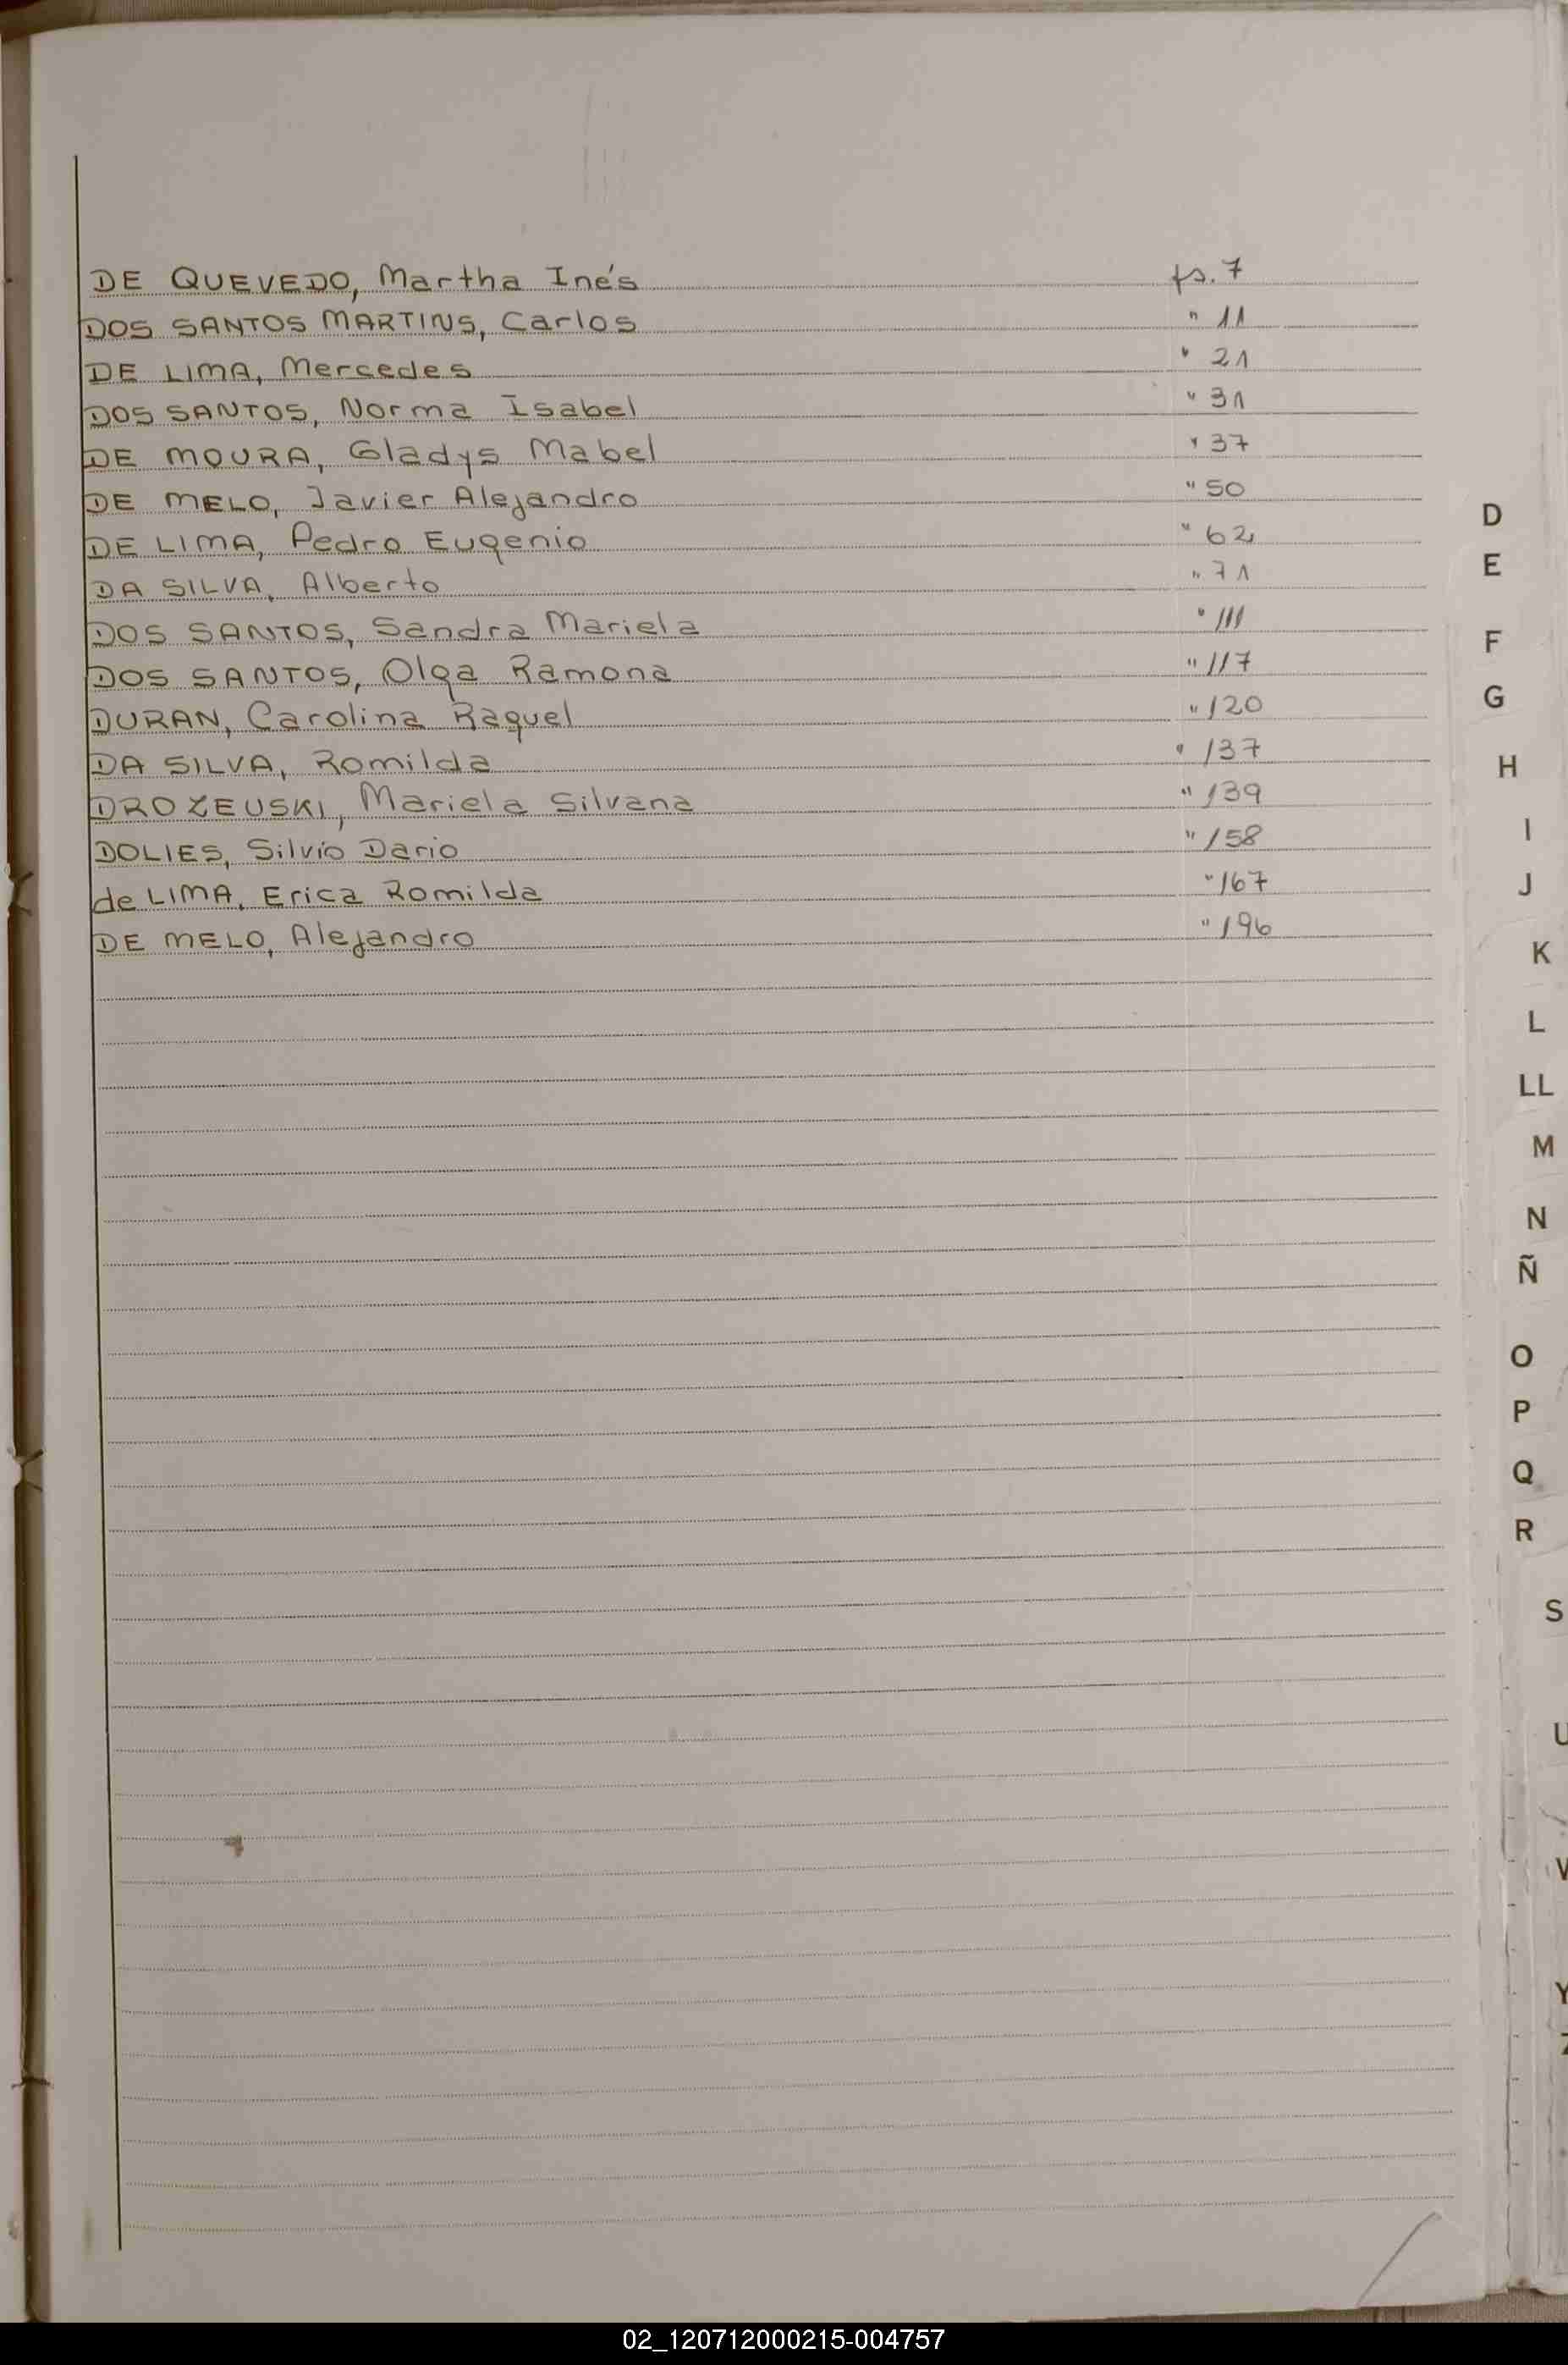 DE QUEVEDO, Martha Inés fs. 7
DOS SANTOS MARTINS, Carlos " 11
DE LIMA, Mercedes " 21
DOS SANTOS, Norma Isabel " 31
DE MOURA, Gladys Mabel " 37
DE MELO, Javier Alejandro " 50
DE LIMA, Pedro Eugenio " 62
DA SILVA, Alberto " 71
DOS SANTOS, Sandra Mariela " 111
DOS SANTOS, Olga Ramona " 117
DURAN, Carolina Raquel " 120
DA SILVA, Romilda " 137
DROZEUSKI, Mariela Silvana " 139
DOLIES, Silvio Dario " 158
de LIMA, Erica Romilda " 167
DE MELO, Alejandro " 196
D
E
F
G
H
I
J
K
L
LL
M
N
Ñ
O
P
Q
R
S
U
V
Y
Z
02_120712000215-004757